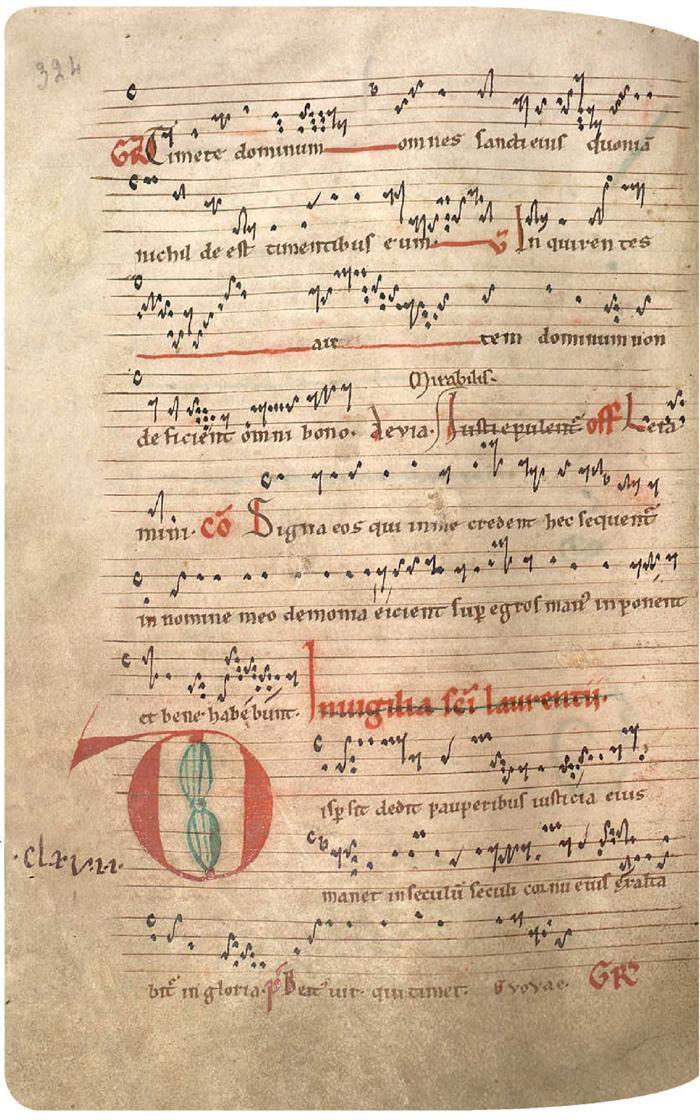 324
GR Timete dominum omnes sancti eius quoniā
nichil de est timentibus eum v̄ Inquirentes
autem dominum non
Mirabilis.
deficient omni bono. Alleluia. Iusti epulent᷑ off Leta
mini. cō Signa eos qui in me credent hec sequent᷑
in nomine meo demonia eicient sup̱ egros man᷒ inponent
et bene habebunt. In uigilia sc̄i laurentij.
Disp̱sit dedit pauperibus iusticia eius
.clxviii.
manet in seculū seculi cornu eius exalta
bit᷑ in gloria. p̄s Beat᷒ uir qui timet. Evovae. GR